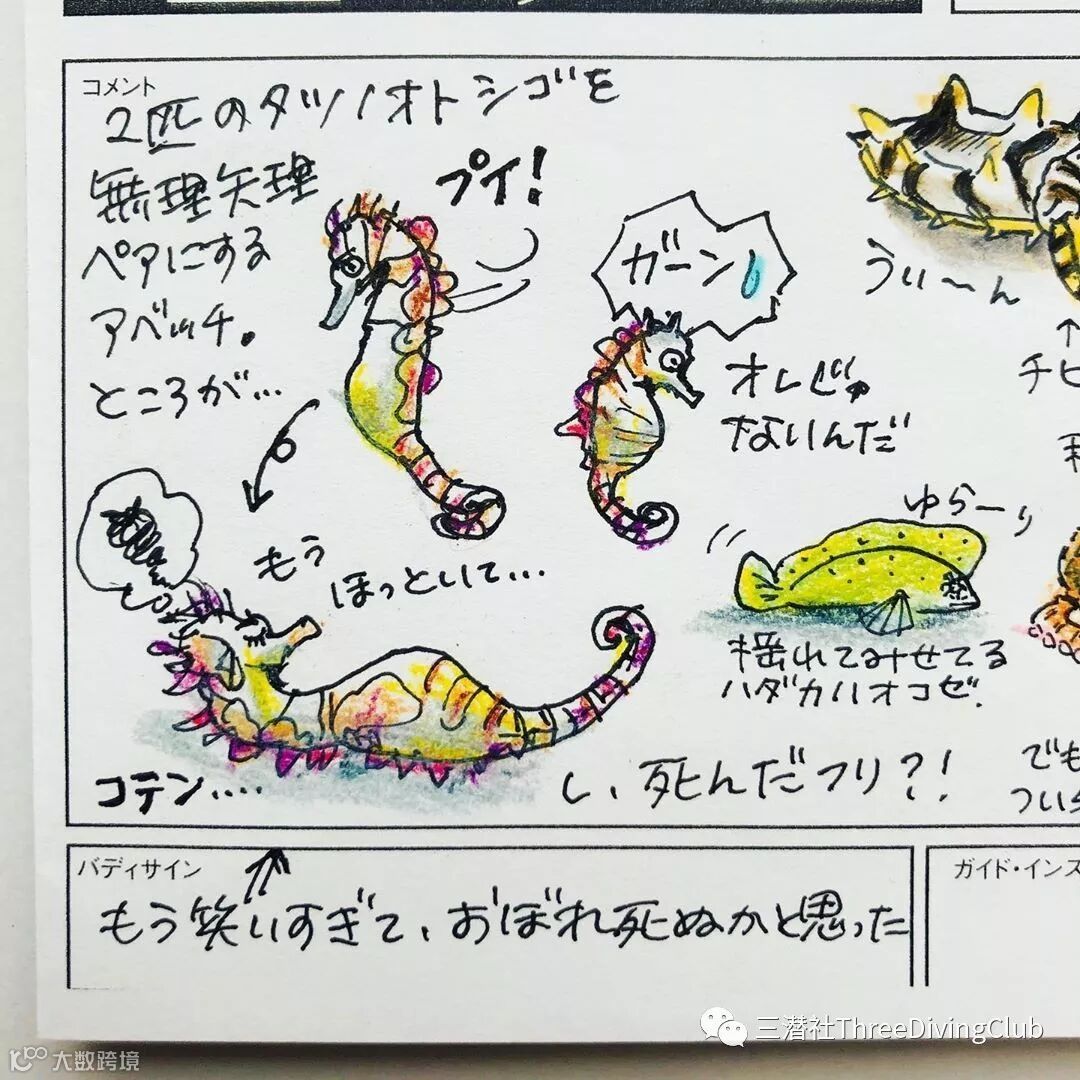 コメント
2匹のタツノオトシゴを
無理矢理
ペアにする
アベッチ。
ところが…
プイ!
ガーン
オレじゃ
ないんだ
うぃ〜ん
↑
チビ
もう
ほっといて…
コテン....
し、死んだフリ?!
ゆらーり
揺れてみせてる
ハダカハオコゼ.
でも
つい
バディサイン
もう笑いすぎて、おぼれ死ぬかと思った
ガイド・インス
三潜社ThreeDivingClub
大数跨境